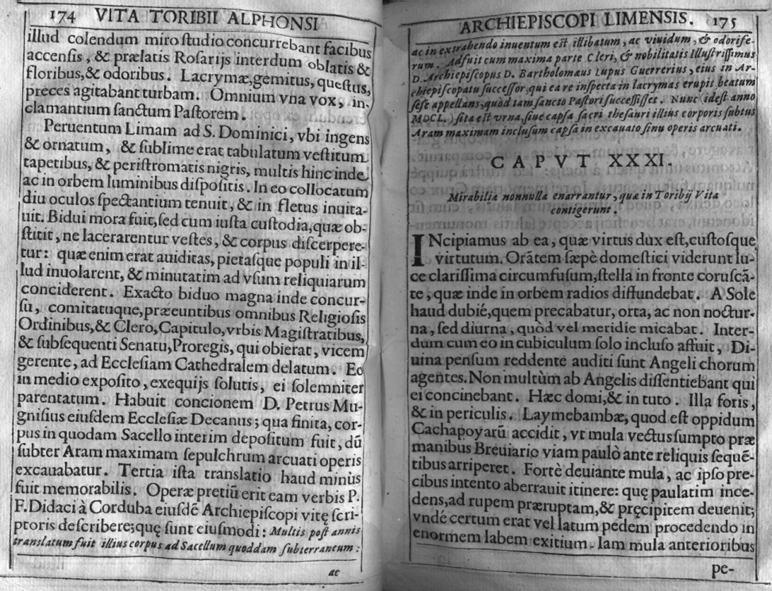 174 VITA TORIBII ALPHONSI
illud colendum miro studio concurrebant facibus
accensis, & prælatis Rosarijs interdum oblatis &
floribus, & odoribus. Lacrymæ, gemitus, questus,
preces agitabant turbam. Omnium vna vox, in-
clamantium sanctum Pastorem.
Peruentum Limam ad S. Dominici, vbi ingens
& ornatum, & sublime erat tabulatum vestitum
tapetibus, & peristromatis nigris, multis hinc inde
ac in orbem luminibus dispositis. In eo collocatum
diu oculos spectantium tenuit, & in fletus inuita-
uit. Bidui mora fuit, sed cum iusta custodia, quæ ob-
stitit, ne lacerarentur vestes, & corpus discerpere-
tur: quæ enim erat auiditas, pietasque populi in il-
lud inuolarent, & minutatim ad vsum reliquiarum
conciderent. Exacto biduo magna inde concur-
su, comitatuque, præeuntibus omnibus Religiosis
Ordinibus, & Clero, Capitulo, vrbis Magistratibus,
& subsequenti Senatu, Proregis, qui obierat, vicem
gerente, ad Ecclesiam Cathedralem delatum. Eo
in medio exposito, exequijs solutis, ei solemniter
parentatum. Habuit concionem D. Petrus Mu-
gnisius eiusdem Ecclesiæ Decanus; qua finita, cor-
pus in quodam Sacello interim depositum fuit, dū
subter Aram maximam sepulchrum arcuati operis
excauabatur. Tertia ista translatio haud minus
fuit memorabilis. Operæ pretiū erit eam verbis P.
F. Didaci à Corduba eiusdē Archiepiscopi vitę scri-
ptoris describere; quę sunt eiusmodi: Multis post annis
translatum fuit illius corpus ad Sacellum quoddam subterraneum:
ac
ARCHIEPISCOPI LIMENSIS. 175
ac in extrahendo inuentum est illibatum, ac viuidum, & odorife-
rum. Adfuit cum maxima parte Cleri, & nobilitatis Illustrissimus
D. Archiepiscopus D. Bartholomæus Lupus Guerrerius, eius in Ar-
chiepiscopatu successor, qui ea re inspecta in lacrymas erupis beatum
sese appellans, quòd tam sancto Pastori successisset. Nunc idest anno
MDCL. sita est vrna, siue capsa sacri thesauri illius corporis subtus
Aram maximam inclusum capsa in excauato sinu operis arcuati.
CAPVT XXXI.
Mirabilia nonnulla enarrantur, quæ in Toribij Vita
contigerunt.
INcipiamus ab ea, quæ virtus dux est, custosque
virtutum. Orātem sæpè domestici viderunt lu-
ce clarissima circumfusum, stella in fronte coruscā-
te, quæ inde in orbem radios distundebat. A Sole
haud dubiè, quem precabatur, orta, ac non noctur-
na, sed diurna, quòd vel meridie micabat. Inter-
dum cum eo in cubiculum solo incluso affuit, Di-
uina pensum reddente auditi sunt Angeli chorum
agentes. Non multùm ab Angelis dissentiebant qui
ei concinebant. Hæc domi, & in tuto. Illa foris,
& in periculis. Laymebambæ, quod est oppidum
Cachapoyarū accidit, vt mula vectus sumpto præ
manibus Breuiario viam paulò ante reliquis sequē-
tibus arriperet. Fortè deuiante mula, ac ipso pre-
cibus intento aberrauit itinere: quę paulatim ince-
dens, ad rupem præruptam, & pręcipitem deuenit;
vndè certum erat vel latum pedem procedendo in
enormem labem exitium. Iam mula anterioribus
pe-